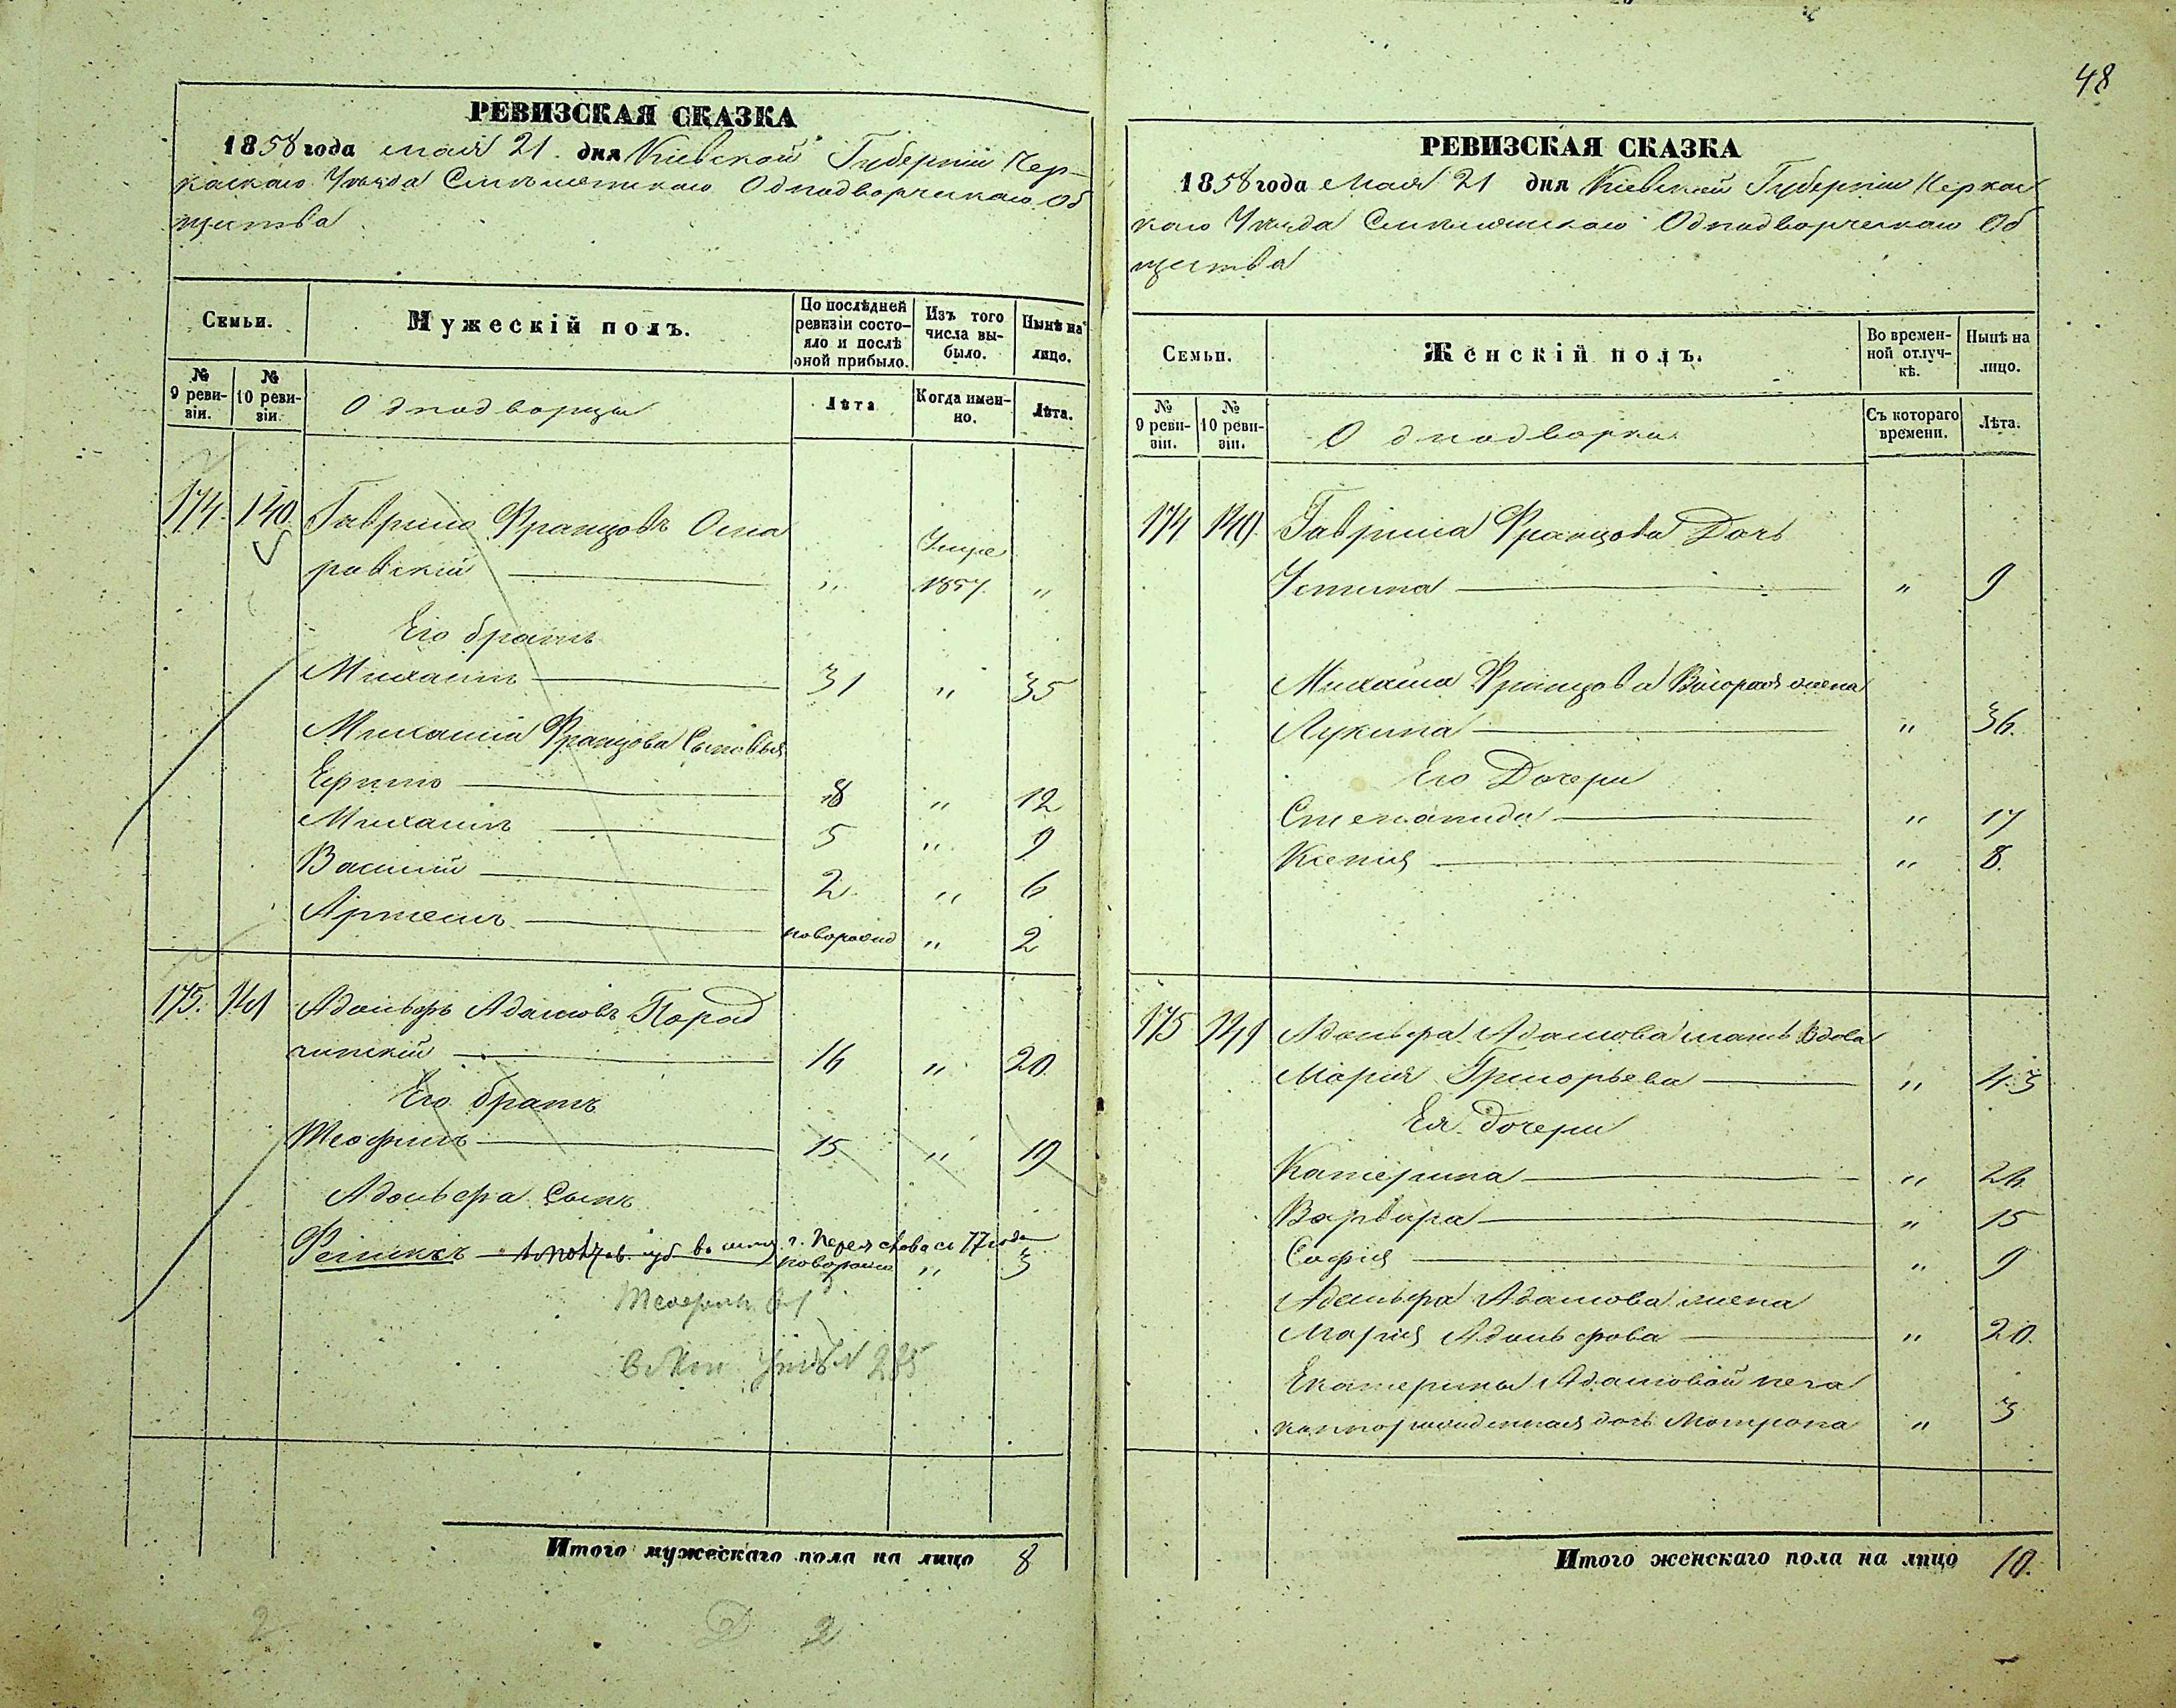 48
РЕВИЗСКАЯ СКАЗКА
1858 года мая 21 дня Кіевской Губерніи Чер-
каскаго Уѣзда Смѣлянскаго Однодворческаго Об
щества
Семьи.
Мужескій полъ.
По послѣдней ревизіи состо-яло и послѣ оной прибыло.
Изъ того числа вы-было.
Нынѣ на лицо.
№ 9 реви-зіи.
№ 10 реви-зіи.
Однодворцы
Лѣта
Когда имен-но.
Лѣта.
174. 140. Гаврило Францовъ
ровскій „ Умре 1857. „
Его братъ
Михаилъ 31 „ 35
Михаила Францова Сыновья
Ефимъ 8 „ 12
Михаилъ 5 „ 9
Василій 2 „ 6
Артемъ новорожд „ 2
175. 141 Адольфъ Адамовъ Пород
чинскій 16 „ 20
Его братъ
Теофилъ 15 „ 19
Адольфа Сынъ
Феликсъ новорожд „ 3
Итого мужескаго пола на лицо 8
2 2
РЕВИЗСКАЯ СКАЗКА
1858 года Мая 21 дня Кіевской Губерніи Черкас
каго Уѣзда Смѣлянскаго Однодворческаго Об
щества
Семьи.
Женскій полъ.
Во времен-ной отлуч-кѣ.
Нынѣ на лицо.
№ 9 реви-зіи.
№ 10 реви-зіи.
Однодворки
Съ котораго времени.
Лѣта.
174 140. Гаврила Францова Дочь
Устина „ 9
Михаила Францова Вторая жена
Лукина „ 36.
Его Дочери
Степанида „ 17
Ксенія „ 8.
175 141 Адольфа Адамова мать Вдова
Марія Григорьева „ 43
Ея дочери
Катерина „ 24.
Варвара „ 15
Софія „ 9
Адольфа Адамова жена
Марія Адольфова „ 20.
Екатерины Адамовой неза
коннорожденная дочь Мотрона „ 3
Итого женскаго пола на лицо 10.